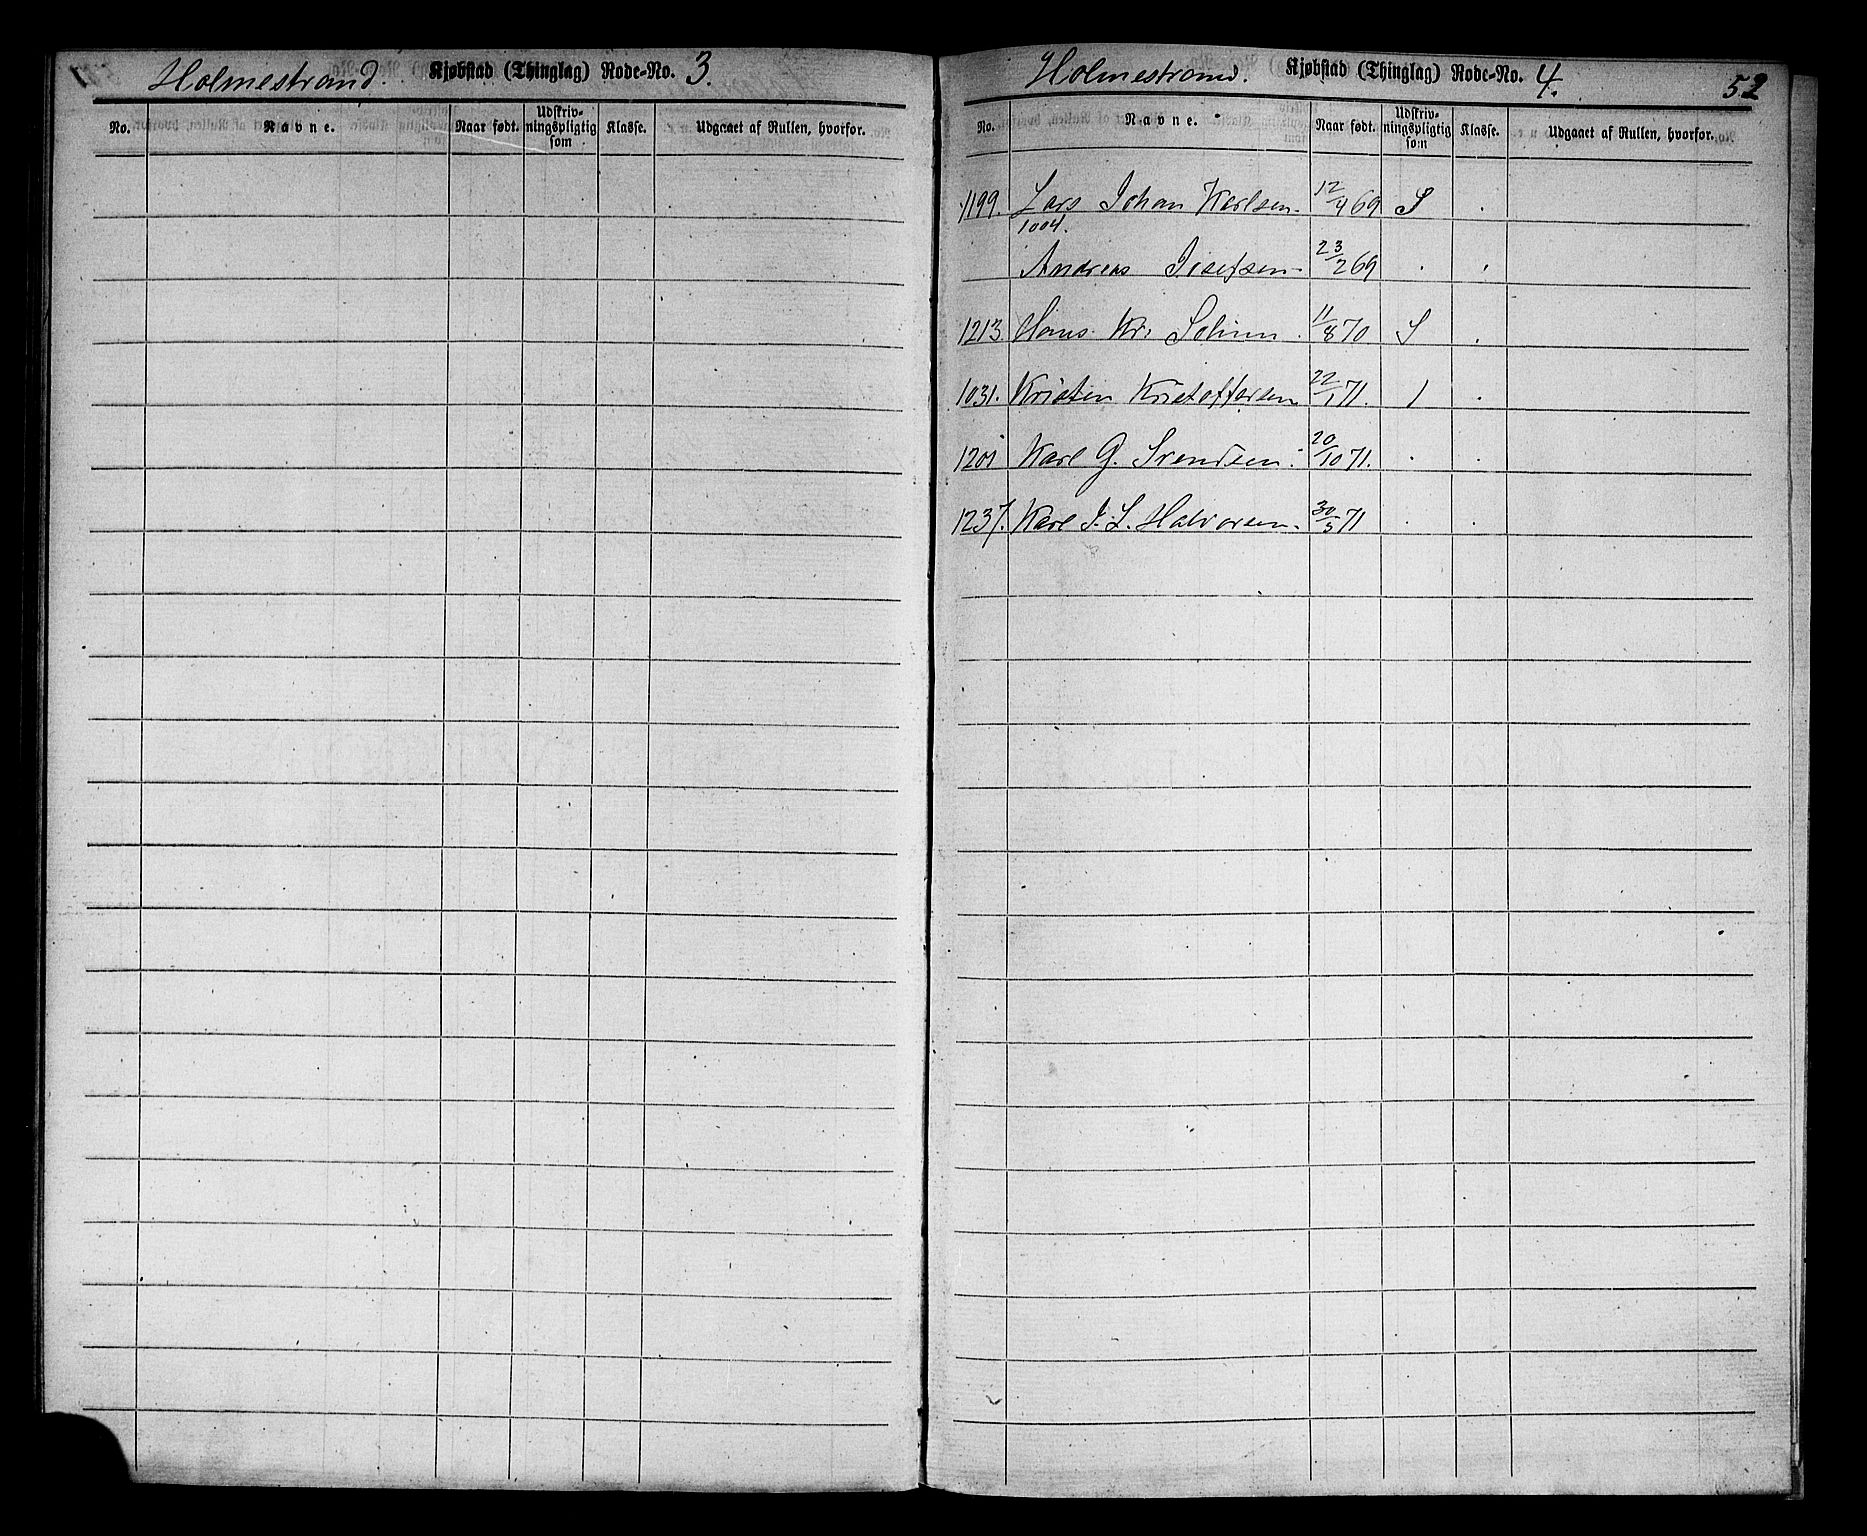 Holmestrand. Kjøbstad (Thinglag) Rode-No. 3.
No. Navne. Naar født. Udskriv-ningspligtig som Klasse. Udgaaet af Rullen, hvorfor.
Holmestrand. Kjøbstad (Thinglag) Rode-No. 4. 52
No. Navne. Naar født. Udskriv-ningspligtig som Klasse. Udgaaet af Rullen, hvorfor.
1199. Lars Johan Karlsen. 12/9 69 S .
1004.
Andreas Josefsen 23/2 69 . .
1213. Hans Kr. 11/8 70 S .
1031. Kristen Kristoffersen 22/1 71. 1 .
1201 Karl G. Svendsen. 20/10 71. . .
1237. Karl J. L. Halvorsen. 30/3 71 . .